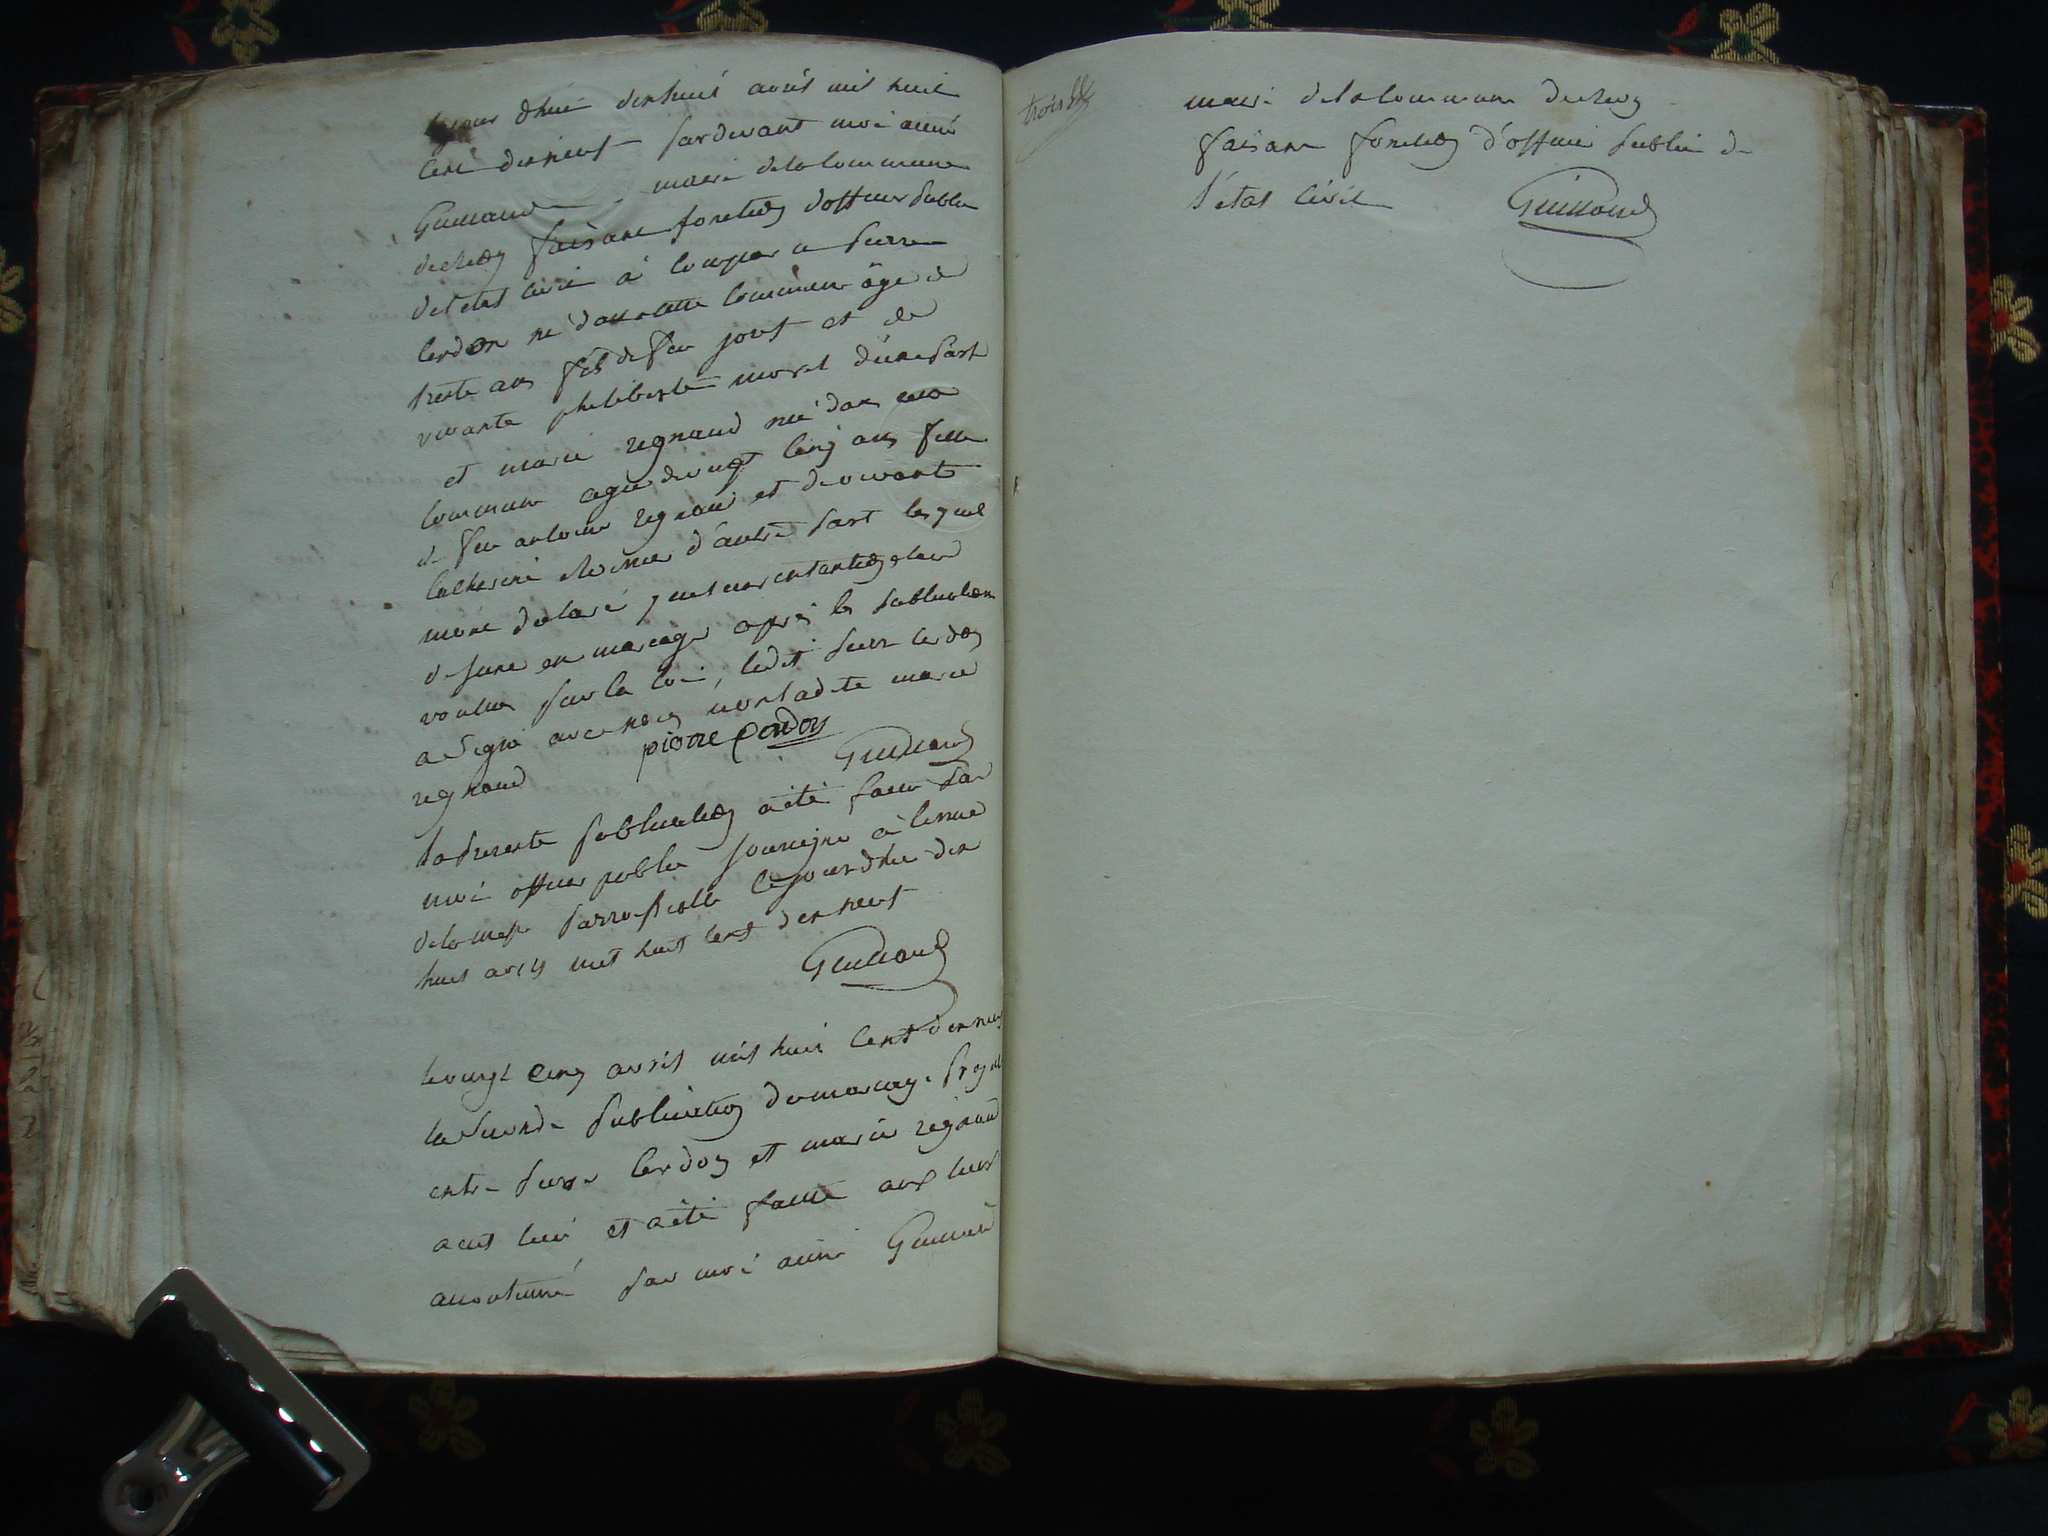 ce jour dhui dixhuit avril mil huit
cent dixneuf pardevant moi aimé
Guillaud maire de la commune
faisant fonction dofficier public
de letat civil à comparu pierre
cerdon né dans cette commune âgé de
trente ans fils de feu et de
vivante philiberte morel d'une part
et marie regnaud né dans cette
commune agée de vingt cinq ans fille
de feu antoine regnaud et de vivante
catherine d'autre part lesquel
mont déclaré
en mariage après les publications
voulues par la loi, ledit pierre cerdon
a signé avec nous non ladite marie
regnaud pierre Cerdon Guillaud
la presente publication a été faite par
moi officier public soussigné à lissue
de la messe parroissialle cejourdhui dix
huit avril mil huit cent dixneuf
Guillaud
le vingt cinq avril mil huit cent dixneuf
la seconde publication du mariage projeté
entre pierre cerdon et marie regnaud
a eut lieu et a été faitte aux lieux
accoutumé par moi aimé Guillaud
maire de la commune
faisant fonction d'officier public de
l'état civil Guillaud